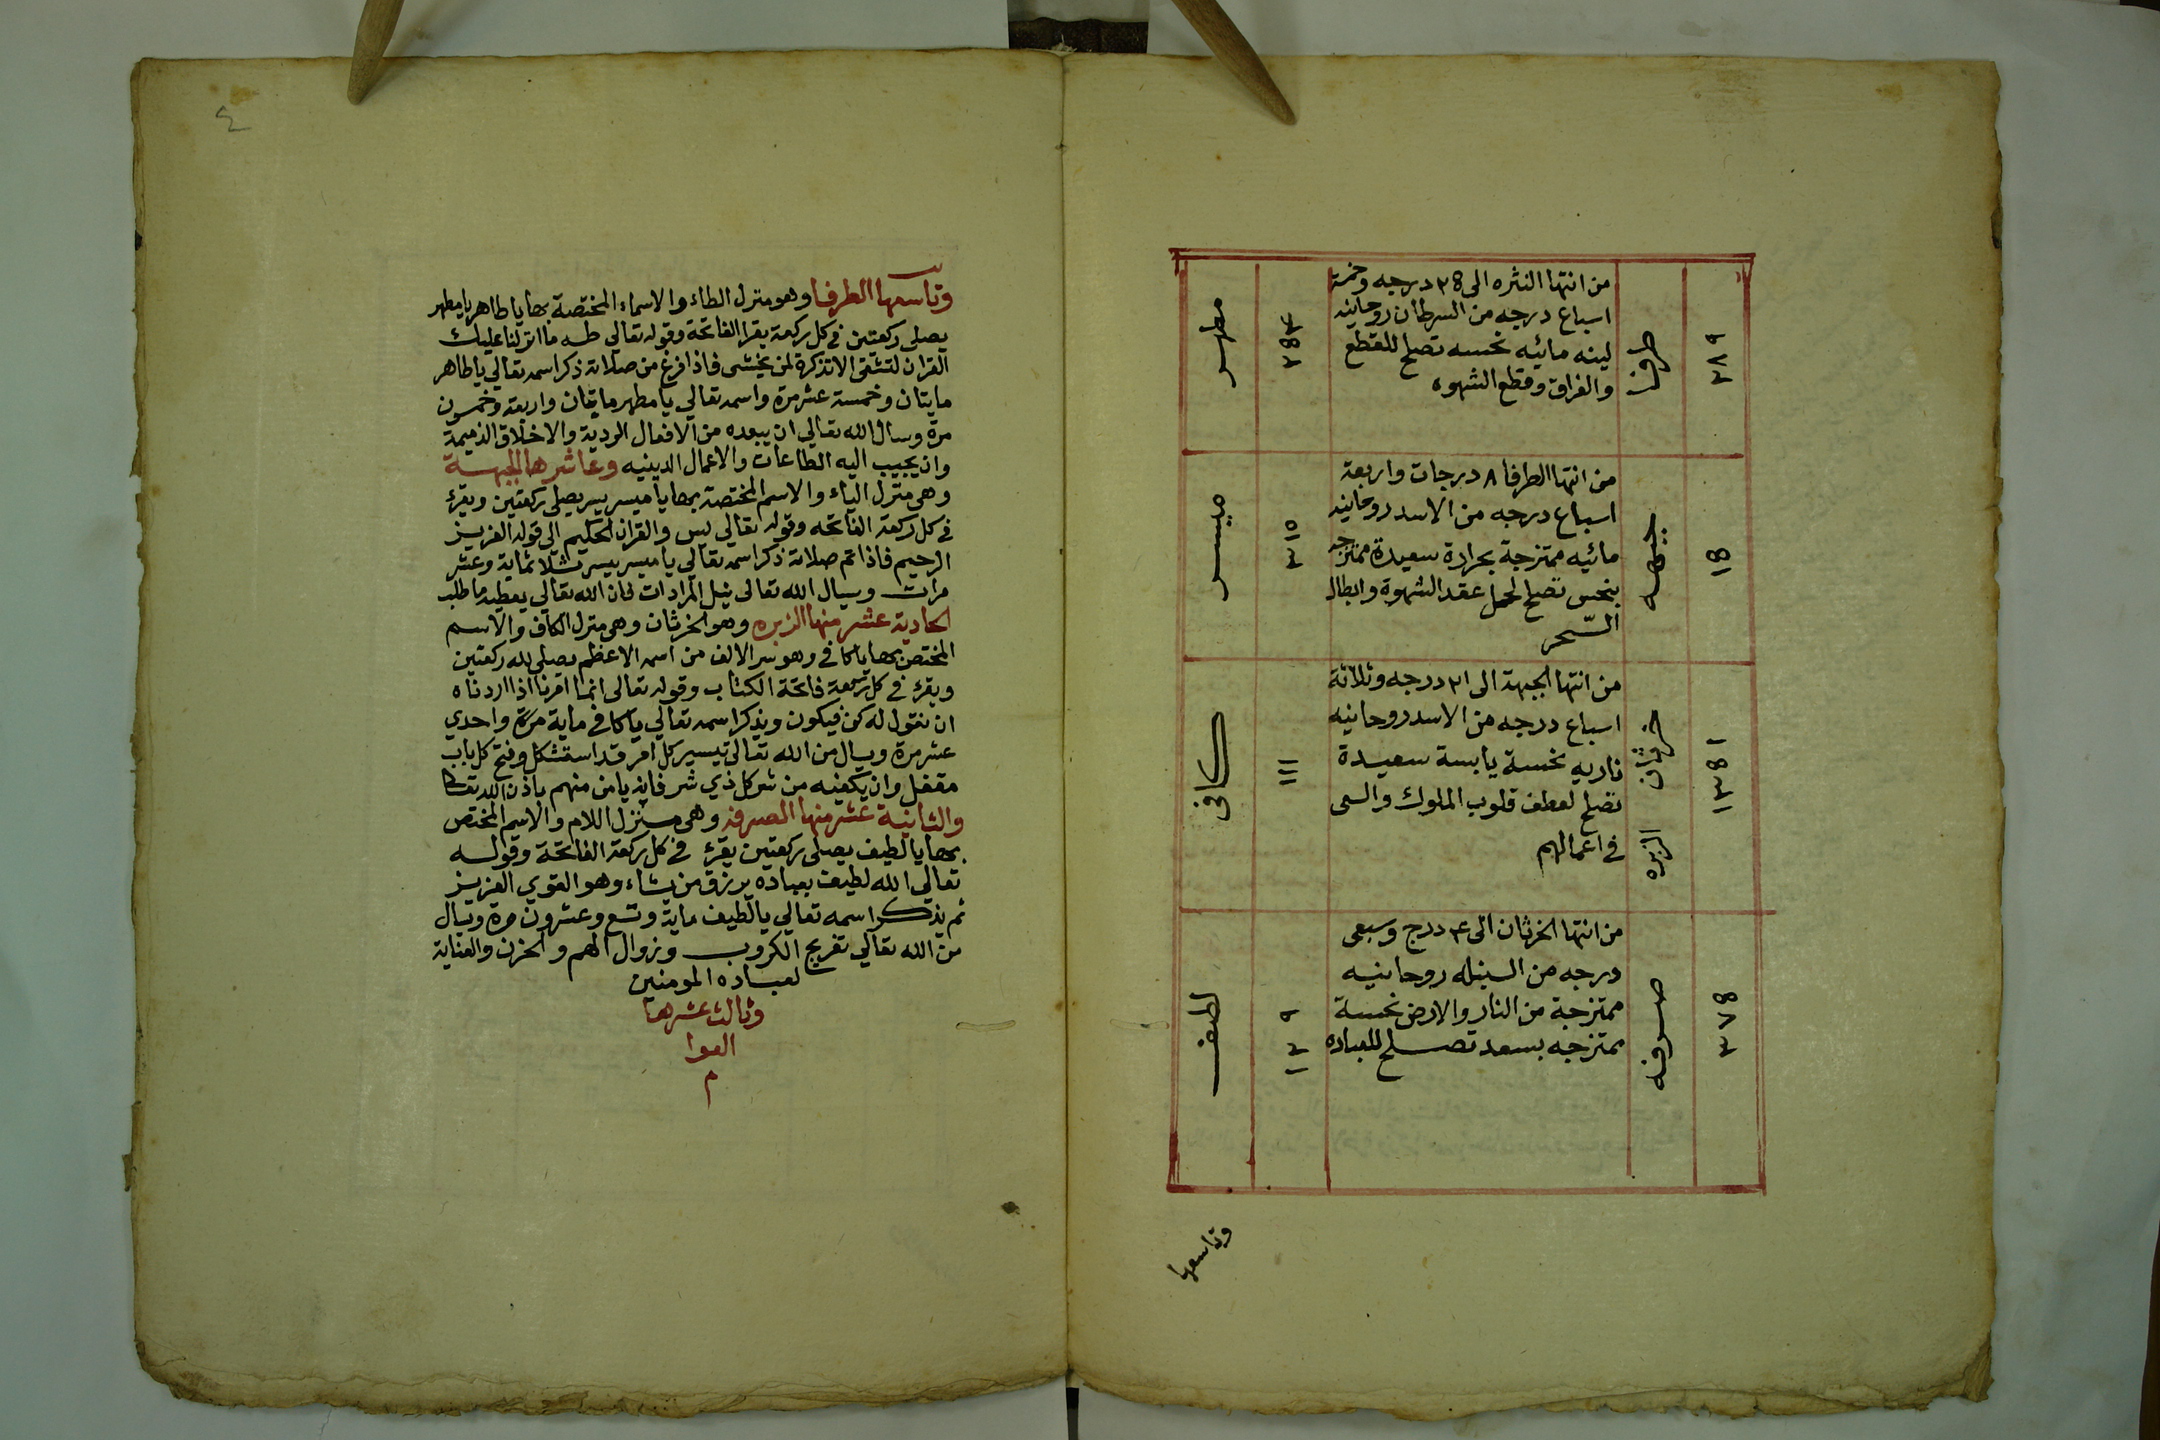 ٢٨٩
طرفا
من انتها النثره الى ٢٥ درجه وخمسة
اسباع درجه من السرطان روحانيه
لينه مائيه نحسه تصلح للقطع
والفراق وقطع الشهوه
٢٥٤
مطهر
١٥
جبهه
من انتها الطرفا ٨ درجات واربعة
اسباع درجه من الاسد روحانيه
مائيه ممتزجة بحرارة سعيدة ممتزجه
بنحس تصلح لحل عقد الشهوة وابطال
السّحر
٣١٥
ميسر
١٣٥١
خرثان
الزبره
من انتها الجبهة الى ٢١ درجه وثلاثة
اسباع درجه من الاسد روحانيه
ناريه نحسة يابسة سعيدة
تصلح لعطف قلوب الملوك والسعى
فى اعمالهم
١١١
كافى
٣٧٥
صرفه
من انتها الخرثان الى ٤ درج وسبعى
درجه من السنبله روحانيه
ممتزجة من النار والارض نحسة
ممتزجه بسعد تصلح للعباده
١٢٩
لطيف
وتاسعها
٤
وتاسعها الطرفا وهو منزل الطاء والاسماء المختصة بها يا طاهر يا مطهر
يصلى ركعتين فى كل ركعة يقرا الفاتحة وقوله تعالى طه ما انزلنا عليك
القران لتشقى الا تذكرة لمن يخشى فاذا فرغ من صلاته ذكر اسمه تعالى يا طاهر
مايتان وخمسة عشر مرة واسمه تعالى يا مطهر مايتان واربعة وخمسون
مرة وسال الله تعالى ان يبعده من الافعال الردية والاخلاق الذميمة
وان يحبب اليه الطاعات والاعمال الدينيه وعاشرها الجبهة
وهى منزل الياء والاسم المختصة بها يا ميسر يسر يصلى ركعتين ويقرء
فى كل ركعة الفاتحه وقوله تعالى يس والقران الحكيم الى قوله العزيز
الرحيم فاذا تم صلاته ذكر اسمه تعالى يا ميسر يسر ثلاثماية وعشر
مرات وسيال الله تعالى نيل المرادات فان الله تعالى يعطيه ما طلب
الحادية عشر منها الزبره وهو الخرثان وهى منزل الكاف والاسم
المختص بها يا كافى وهو سر الالف من اسمه الاعظم يصلى لله ركعتين
ويقرء فى كل ركعة فاتحة الكتاب وقوله تعالى انما امرنا اذا اردناه
ان نقول له كن فيكون ويذكر اسمه تعالى يا كافى ماية مرة واحدي
عشر مرة ويسال من الله تعالى تيسير كل امر قد استشكل وفتح كل باب
مقفل وان يكفيه من شر كل ذي شر فانه يامن منهم باذن الله تعالى
والثانية عشر منها الصرفه وهى منزل اللام والاسم المختص
بها يا لطيف يصلى ركعتين يقرء فى كل ركعة الفاتحة وقوله
تعالى الله لطيف بعباده يرزق من يشاء وهو القوي العزيز
ثم يذكر اسمه تعالى يا لطيف ماية وتسع وعشرون مرة ويسال
من الله تعالى تفريج الكروب وزوال الهم والحزن والعناية
لعباده المومنين
وثالث عشرها
العوا
م